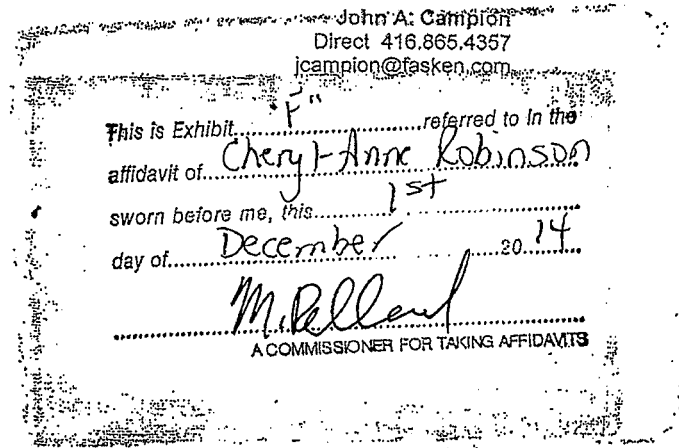 John A. Campion
Direct 416.865.4357
jcampion@fasken.com
This is Exhibit..........."F"...........referred to In the
affidavit of.....Cheryl-Anne Robinson
sworn before me, this..........1st..........
day of..........December..........20.14.....
A COMMISSIONER FOR TAKING AFFIDAVITS